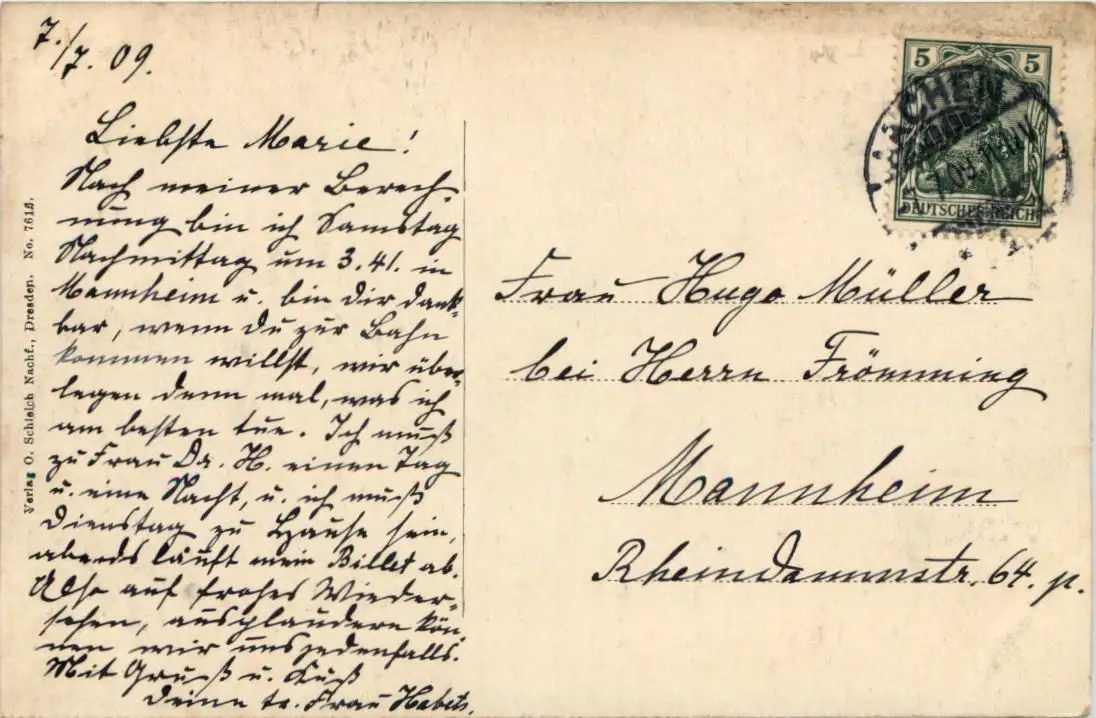 7./7. 09.
Liebste Marie!
Nach meiner Berech-
nung bin ich Samstag
Nachmittag um 3.41. in
Mannheim u. bin dir dank-
bar, wenn du zur Bahn
kommen willst, wir über-
legen denn mal, was ich
am besten tue. Ich muß
zu Frau Dr. H. einen Tag
u. eine Nacht, u. ich muß
Dienstag zu Hause sein,
abends läuft mein Billet ab.
Also auf frohes Wieder-
sehen, ausplaudern kön-
nen wir uns jedenfalls.
Mit Gruß u. Kuß
Deine tr. Frau Habets.
Verlag O. Schleich Nachf., Dresden. No. 761
5 5
AACHEN
7.09. 11-12 V
DEUTSCHES REICH
Frau Hugo Müller
bei Herrn Frömming
Mannheim
Rheindammstr. 64. p.